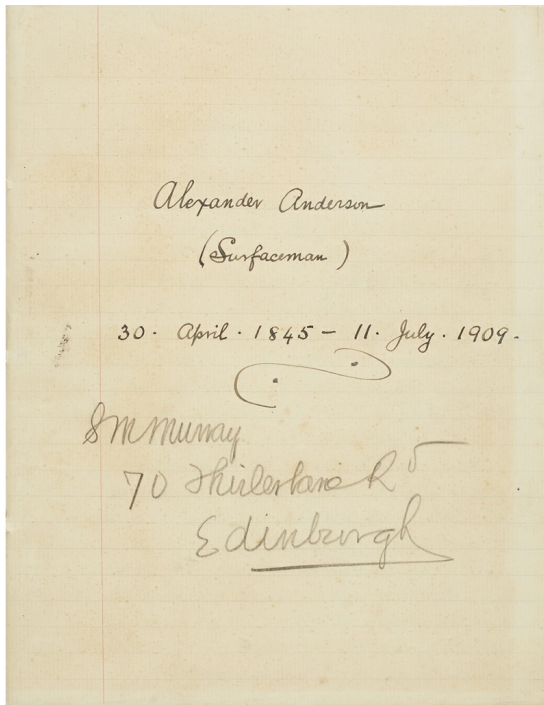 Alexander Anderson
(Surfaceman)
30. April. 1845 – 11. July. 1909.
S M Murray
70 Thirlestane Rd
Edinburgh